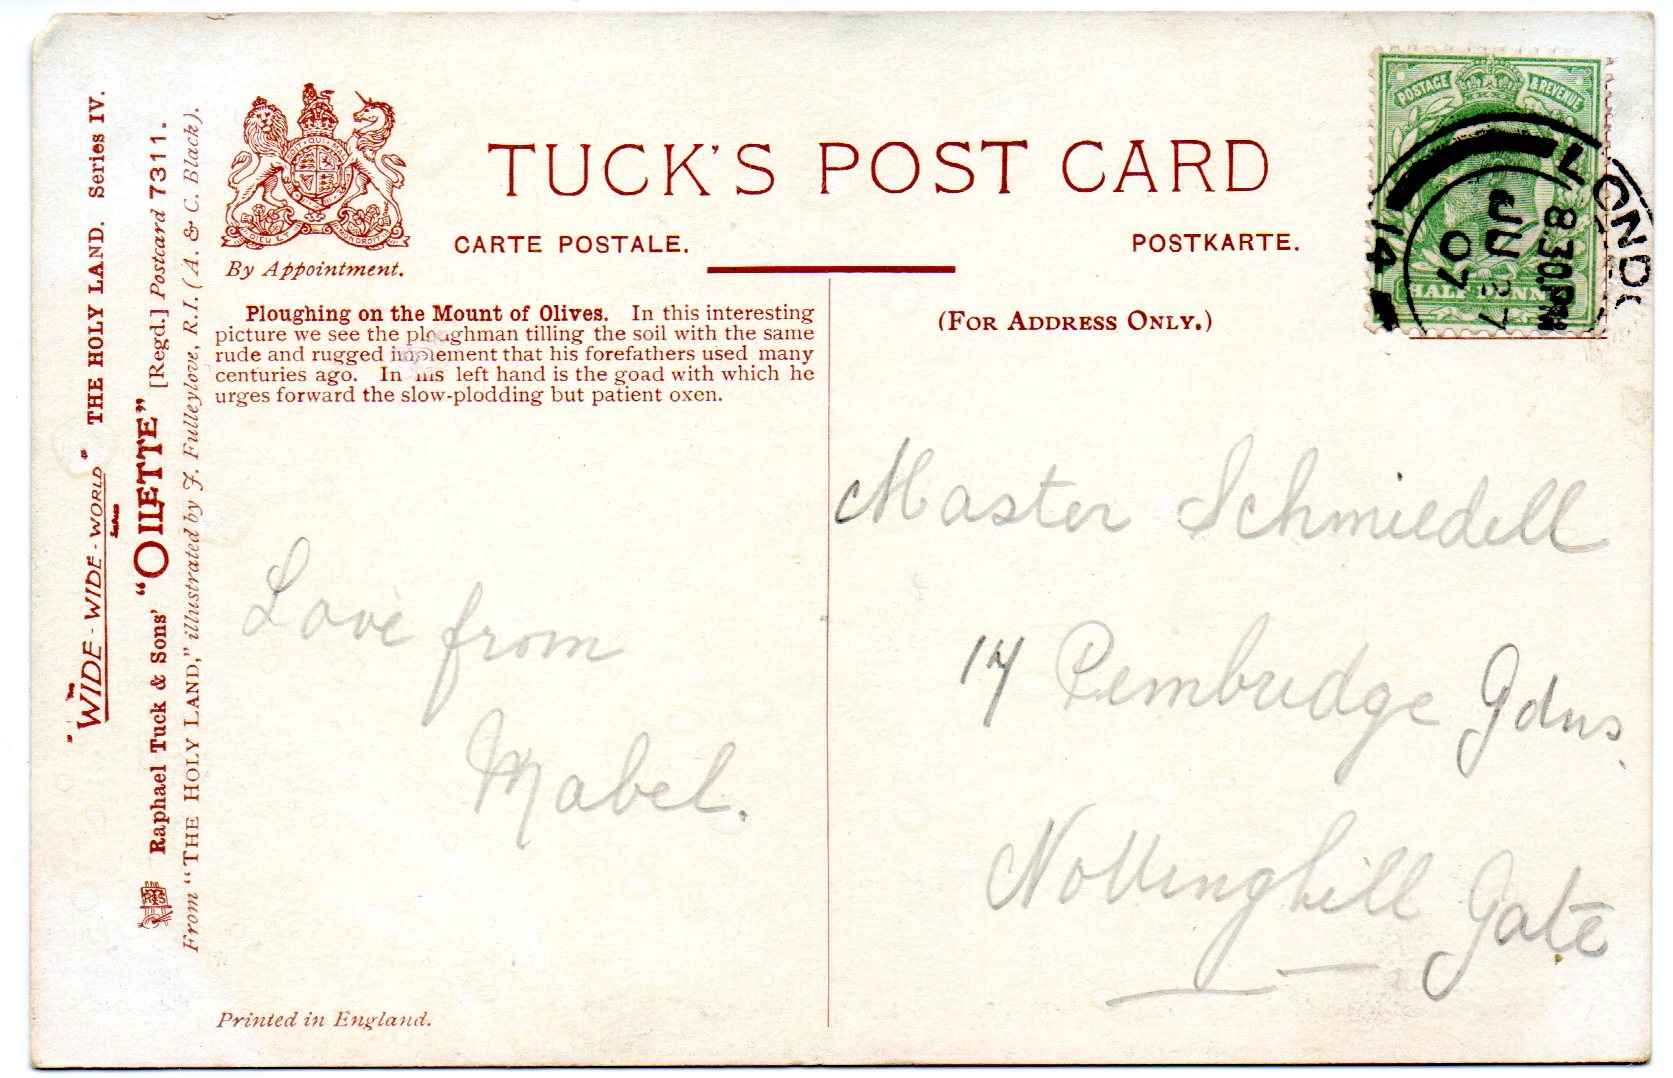 "WIDE-WIDE-WORLD" THE HOLY LAND. Series IV.
Raphael Tuck & Sons' "OILETTE" [Regd.] Postcard 7311.
From "THE HOLY LAND," illustrated by J. Fulleylove, R.I. (A. & C. Black).
By Appointment.
TUCK'S POST CARD
CARTE POSTALE.
POSTKARTE.
Ploughing on the Mount of Olives. In this interesting
picture we see the ploughman tilling the soil with the same
rude and rugged implement that his forefathers used many
centuries ago. In his left hand is the goad with which he
urges forward the slow-plodding but patient oxen.
(FOR ADDRESS ONLY.)
POSTAGE & REVENUE
HALFPENNY
LONDON
8.30.PM
07
14
Love from
Mabel.
Master Schmiedell
17 Pembridge Gdns.
Nottinghill Gate
Printed in England.